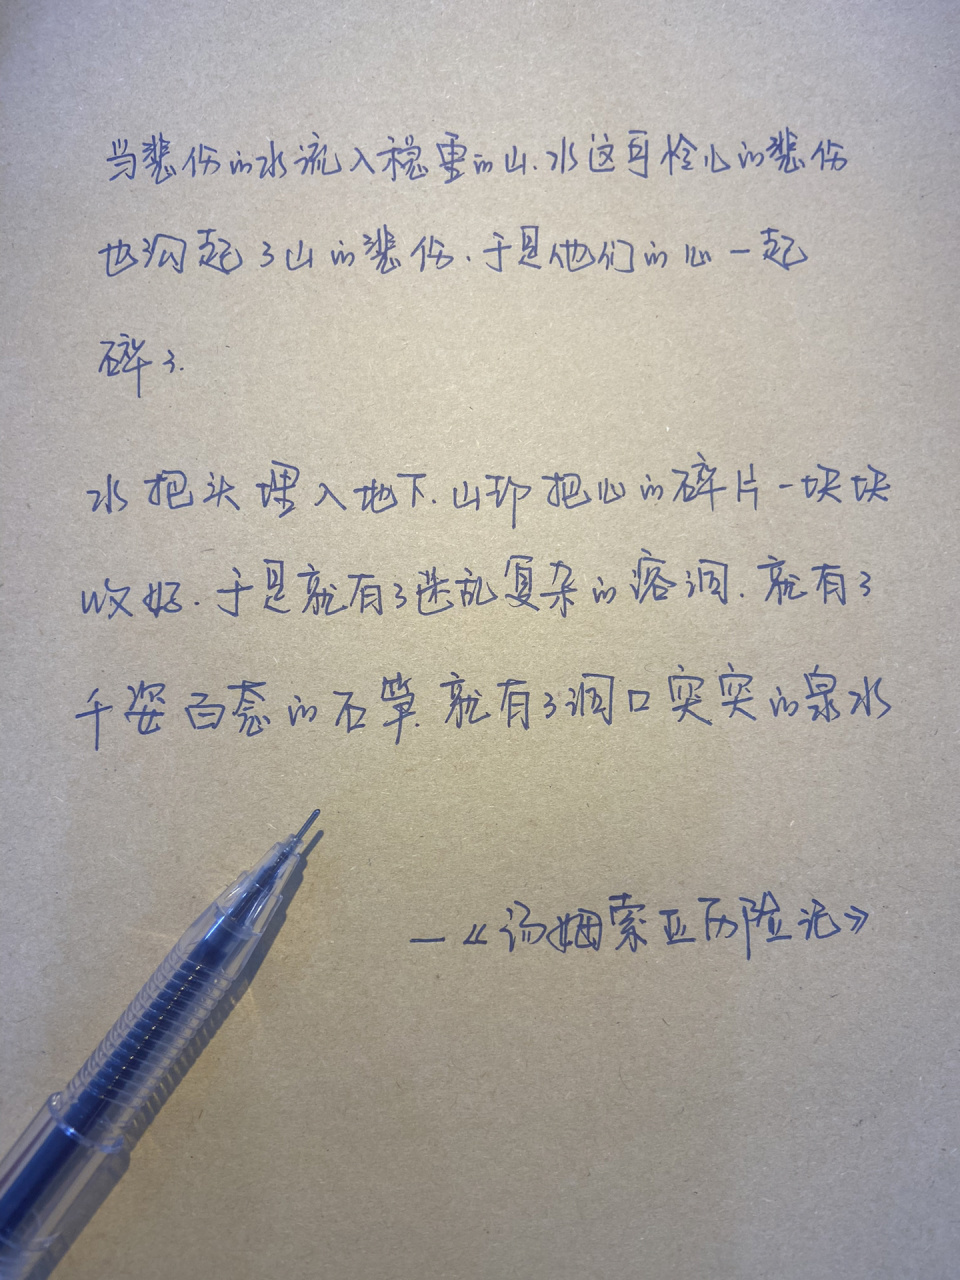 当悲伤的水流入稳重的山.水这可怜心的悲伤
也沟起了山的悲伤.于是他们的心一起
碎了.
水把头埋入地下.山却把心的碎片一块块
收好.于是就有了迷乱复杂的溶洞.就有了
千姿百态的石笋.就有了洞口突突的泉水
—《汤姆索亚历险记》